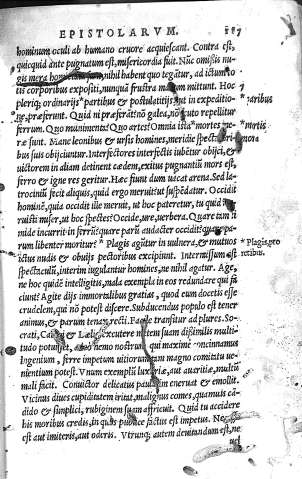 EPISTOLARVM.
hominum oculi ab humano cruore acquiescant. Contra est,
quicquid ante pugnatum est, misericordia fuit. Nūc omissis nu
gis mera nihil habent quo tegātur, ad ictum to
tis corporibus expositi, nunquā frustra manum mittunt. Hoc
pleriq; ordinarijs *partibus & postulatitijs in expeditio-
ne præferunt. Quid ni præferāt? nō galea, nō scuto repellitur
ferrum. Quo munimenta? Quo artes? Omnia ista *mortes mo
ræ sunt. Mane leonibus & ursis homines, meridie specta
bus suis obijciuntur. Interfectores interfectis iubētur obijci, &
uictorem in aliam detinent cædem, exitus pugnantiū mors est,
ferro & igne res geritur. Hæc fiunt dum uacat arena. Sed la-
trociniū fecit aliquis, quid ergo meruit ut suspēdatur. Occidit
hominē, quia occidit ille meruit, ut hoc pateretur, tu quid
ruisti miser, ut hoc spectes? Occide, ure, uerbera. Quare tam ti
mide incurrit in ferrū? quare parū audacter occidit? quare pa-
rum libenter moritur? *Plagis agūtur in uulnera, & mutuos
ictus nudis & obuijs pectoribus excipiunt. Intermissum est
spectaculū, interim iugulantur homines, ne nihil agatur. Age,
ne hoc quidē intelligitis, mala exempla in eos redundare qui fa
ciunt? Agite dijs immortalibus gratias, quod eum docetis esse
crudelem, qui nō potest discere. Subducendus populo est tener
animus, & parum tenax recti. Facile transitur ad plures. So-
crati, Catoni & Lælio excutere mentem suam dissimilis multi-
tudo potuisset, nemo nostrum, qui maximè concinnamus
Ingenium, ferre impetum uitiorum tam magno comitatu ue-
nientium potest. Vnum exemplū luxuriæ, aut auaritiæ, multū
mali facit. Conuictor delicatus paulatim eneruat & emollit.
Vicinus diues cupiditatem irritat, malignus comes, quamuis cā-
dido & simplici, rubiginem suam affricuit. Quid tu accidere
his moribus credis, in quos publice factus est impetus. Ne-
est aut imiteris, aut oderis. Vtrunq; autem deuitandum est, ne
uel
*paribus
*mortis
*Plagis,pro